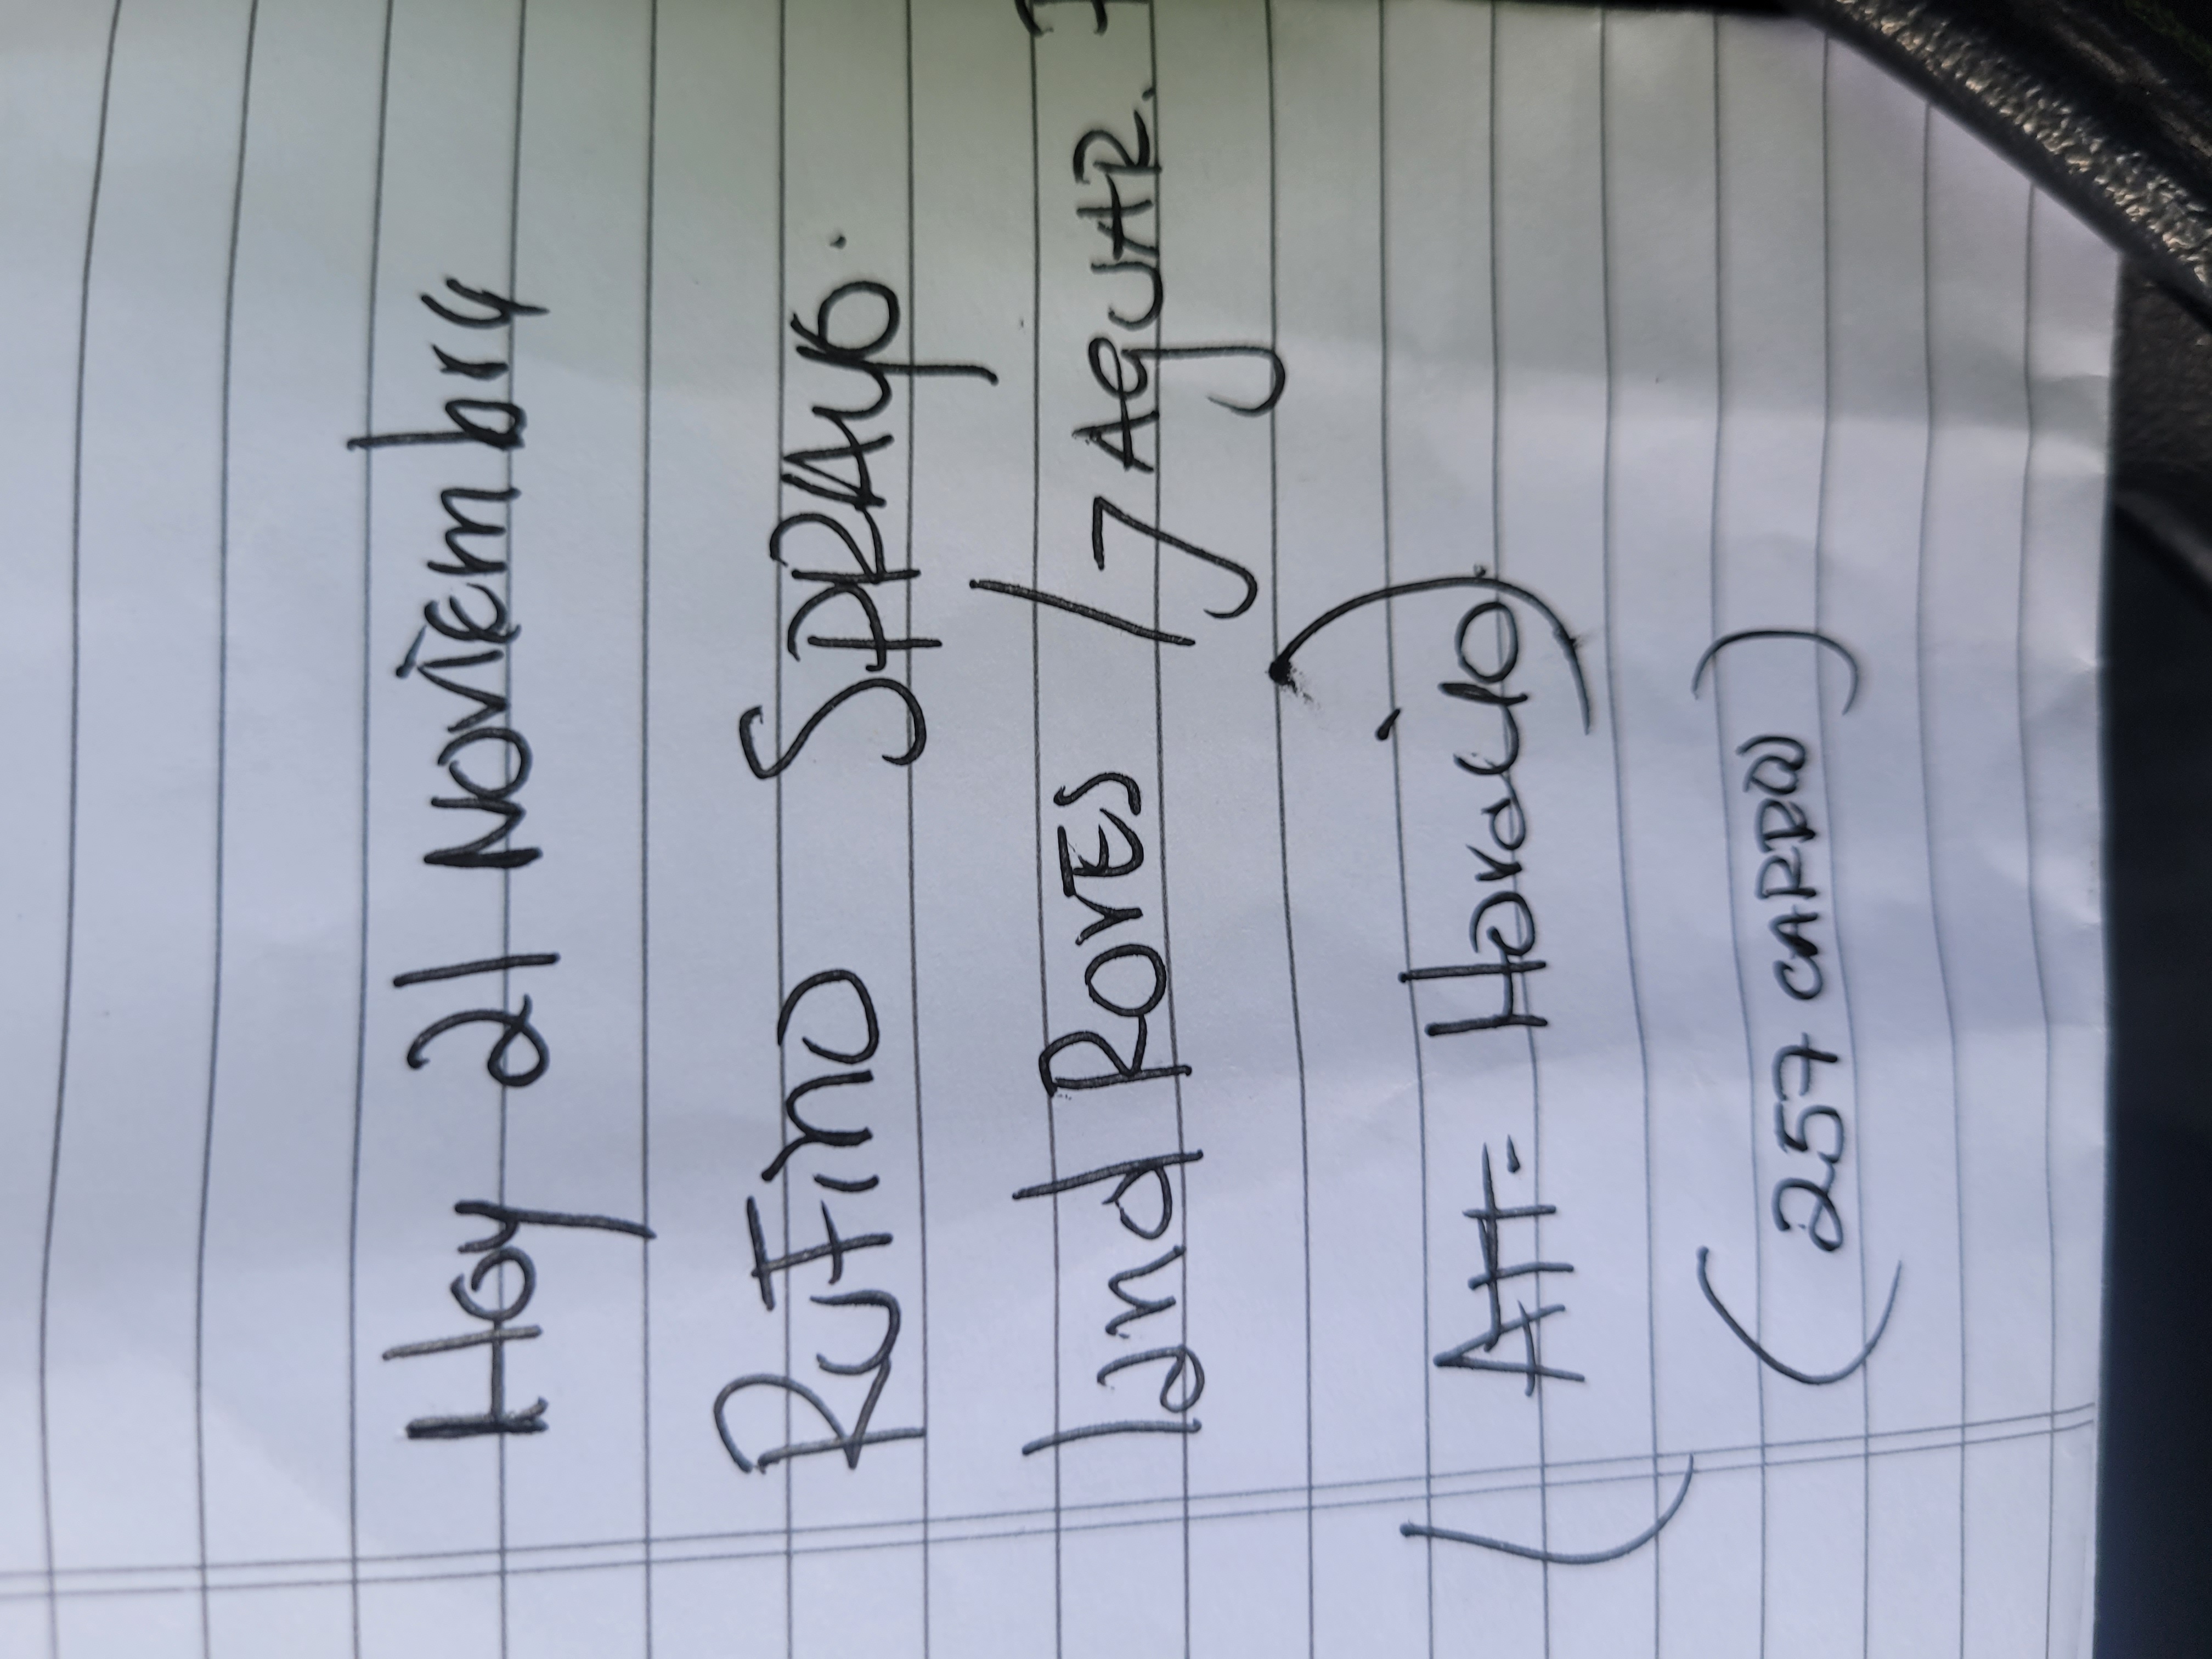 Hoy 21 Noviembre
RuFino SPRAYO.
land Rover / 7 AguHR.
(ATT- Horacio)
(257 CARRO)